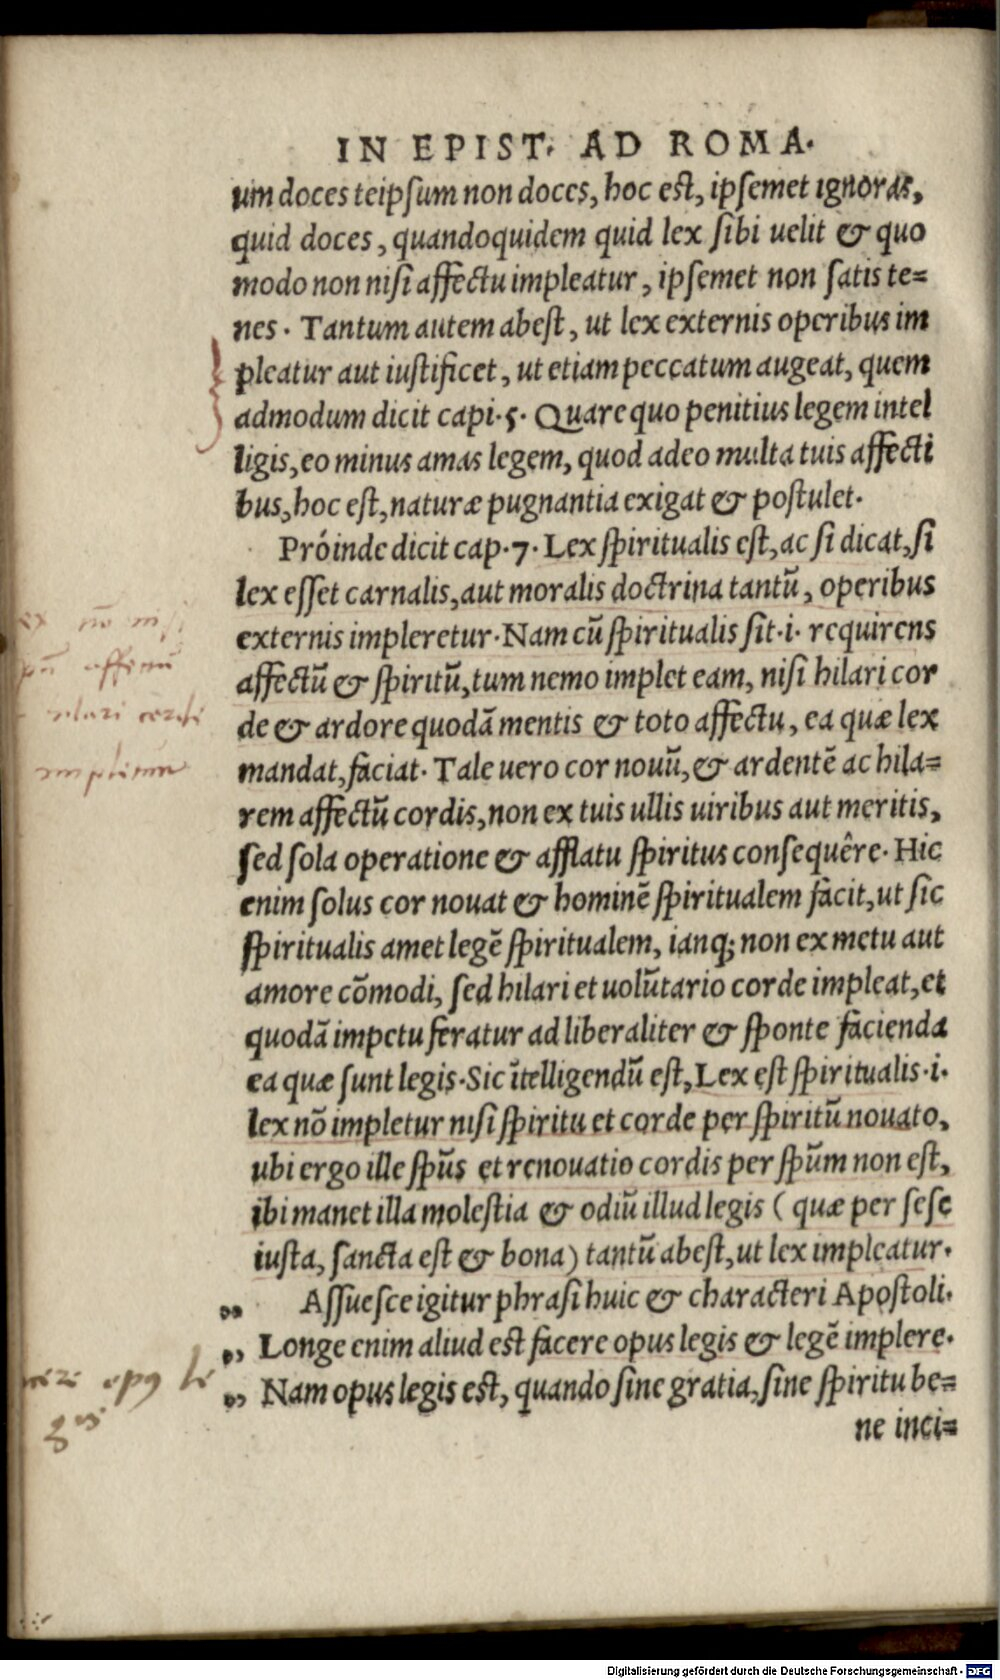 IN EPIST. AD ROMA.
um doces teipsum non doces, hoc est, ipsemet ignoras,
quid doces, quandoquidem quid lex sibi uelit & quo
modo non nisi affectu impleatur, ipsemet non satis te=
nes. Tantum autem abest, ut lex externis operibus im
pleatur aut iustificet, ut etiam peccatum augeat, quem
admodum dicit capi.5. Quare quo penitius legem intel
ligis, eo minus amas legem, quod adeo multa tuis affecti
bus, hoc est, naturæ pugnantia exigat & postulet.
Próinde dicit cap.7. Lex spiritualis est, ac si dicat, si
lex esset carnalis, aut moralis doctrina tantũ, operibus
externis impleretur. Nam cũ spiritualis sit .i. requirens
affectũ & spiritũ, tum nemo implet eam, nisi hilari cor
de & ardore quodã mentis & toto affectu, ea quæ lex
mandat, faciat. Tale uero cor nouũ, & ardentẽ ac hila=
rem affectũ cordis, non ex tuis ullis uiribus aut meritis,
sed sola operatione & afflatu spiritus consequêre. Hic
enim solus cor nouat & hominẽ spiritualem facit, ut sic
spiritualis amet legẽ spiritualem, ianq; non ex metu aut
amore cõmodi, sed hilari et uolũtario corde impleat, et
quodã impetu feratur ad liberaliter & sponte facienda
ea quæ sunt legis. Sic ĩtelligendũ est, Lex est spiritualis .i.
lex nõ impletur nisi spiritu et corde per spiritũ nouato,
ubi ergo ille spũs et renouatio cordis per spũm non est,
ibi manet illa molestia & odiũ illud legis ( quæ per sese
iusta, sancta est & bona) tantũ abest, ut lex impleatur.
„ Assuesce igitur phrasi huic & characteri Apostoli.
„ Longe enim aliud est facere opus legis & legẽ implere.
„ Nam opus legis est, quando sine gratia, sine spiritu be=
ne inci=
Digitalisierung gefördert durch die Deutsche Forschungsgemeinschaft - DFG